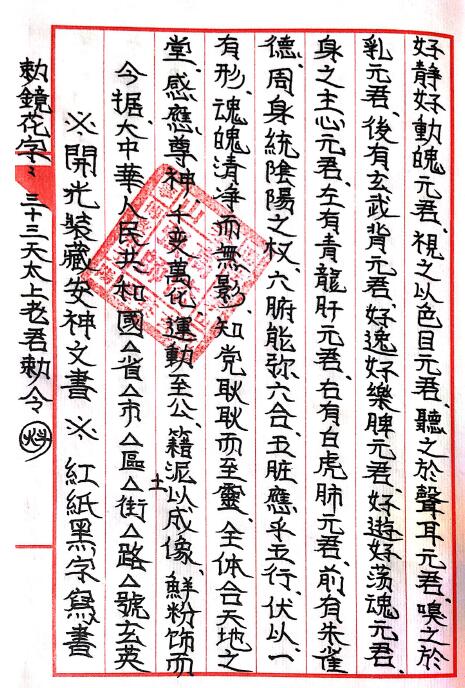 勅鏡花字：三十三天太上老君勅令
※開光裝藏安神文書 ※ 紅紙黑字寫書
今据大中華人民共和國△省△市△區△街△路△號玄英
堂、感應尊神、千变萬化、運動至公、籍泥土以成像、鮮粉饰而
有形、魂魄清净而無影、知党耿耿而至靈、全体合天地之
德、周身統陰陽之权、六腑能弥六合、五脏應乎五行、伏以、一
身之主心元君、左有青龍肝元君、右有白虎肺元君、前有朱雀
乳元君、後有玄武背元君、好逸好樂脾元君、好遊好荡魂元君、
好静好動魄元君、視之以色目元君、聽之於聲耳元君、嗅之於